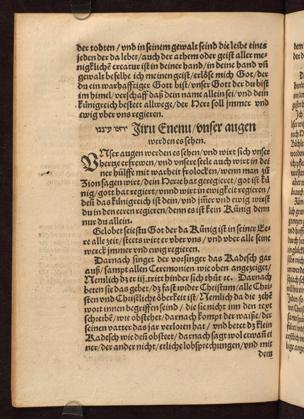 der todten / vnd in seinem gewalt seind die leibe eines
jeden der da lebet / auch der athem oder geist aller me-
nigklichē creatur ist in deiner hand / in deine hand vñ
gewalt befelhe ich meinen geist / erlöse mich Got / der
du ein warhafftiger Gott bist / vnser Gott der du bist
im himel / verschaff daß dein name allein sei / vnd dein
künigreich bestet allwege / der Herr soll jmmer vnd
ewig vber vns regieren.
Jiru Enenu / vnser augen
werden es sehen.
VNser augen werden es sehen / vnd wirt sich vnser
hertze erfrewen / vnd vnsere seele auch wirt in dei
ner hülff mit warheit frolocken / wenn man zů
Zion sagen wirt / dein Herr hat geregieret / got ist kü
nig / gott hat regiert / vnnd wirt in ewigkeit regieren /
den̄ das künigreich ist dein / vnd jm̄er vnd ewig wirst
du in den eren regieren / denn es ist kein Künig denn
nur du allein.
Gelobet seiestu Got der da Künig ist in seiner Ee-
re alle zeit / stetts wirt er vber vns / vnd vber alle seine
werck jmmer vnd ewig regieren.
Darnach singer der vorsinger das Kadesch gar
auß / sampt allen Ceremonien wie oben angezeiget /
Darnach
beten sie das gebet / dz fast wider Christum / alle Chri-
sten vnd Christliche oberkeit ist / Nemlich da die
wort innen begriffen seind / die sie nicht inn den text
schreibē / wie obstehet / darnach kompt der waise / der
seinen vatter das jar verloren hat / vnd betet dz klein
Kadesch wie den̄ obstet / darnach sagt wol etwan ei
ner / der ander nicht / etliche lobsprechungen / vnd mit
dem